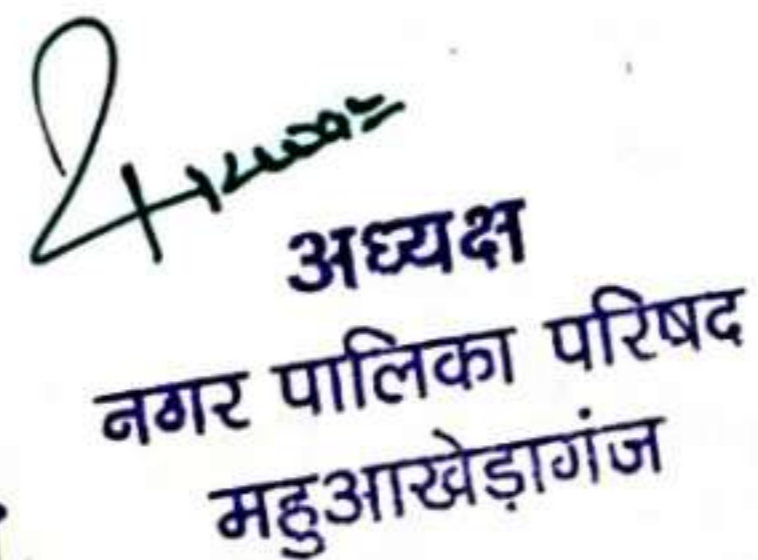 अध्यक्ष
नगर पालिका परिषद
महुआखेड़ागंज